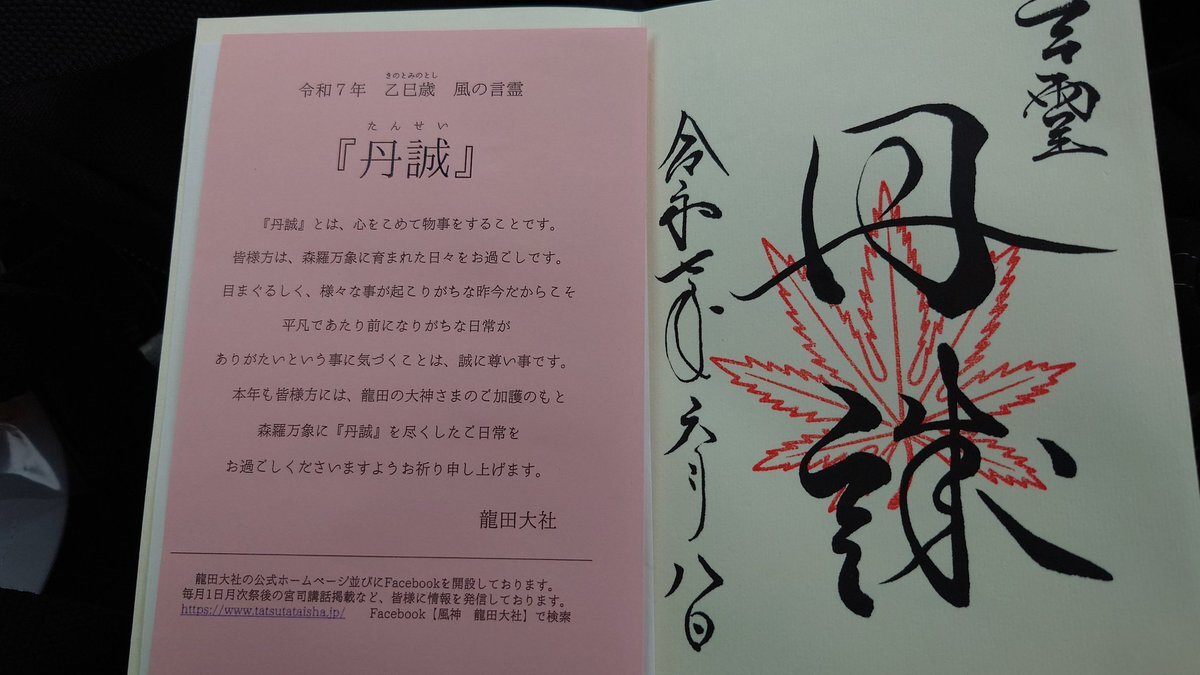 きのとみのとし
令和7年　乙巳歳　風の言霊
たんせい
『丹誠』
『丹誠』とは、心をこめて物事をすることです。
皆様方は、森羅万象に育まれた日々をお過ごしです。
目まぐるしく、様々な事が起こりがちな昨今だからこそ
平凡であたり前になりがちな日常が
ありがたいという事に気づくことは、誠に尊い事です。
本年も皆様方には、龍田の大神さまのご加護のもと
森羅万象に『丹誠』を尽くしたご日常を
お過ごしくださいますようお祈り申し上げます。
龍田大社
龍田大社の公式ホームページ並びにFacebookを開設しております。
毎月1日月次祭後の宮司講話掲載など、皆様に情報を発信しております。
https://www.tatsutataisha.jp/　Facebook【風神　龍田大社】で検索
言霊
丹誠
令和七年六月八日